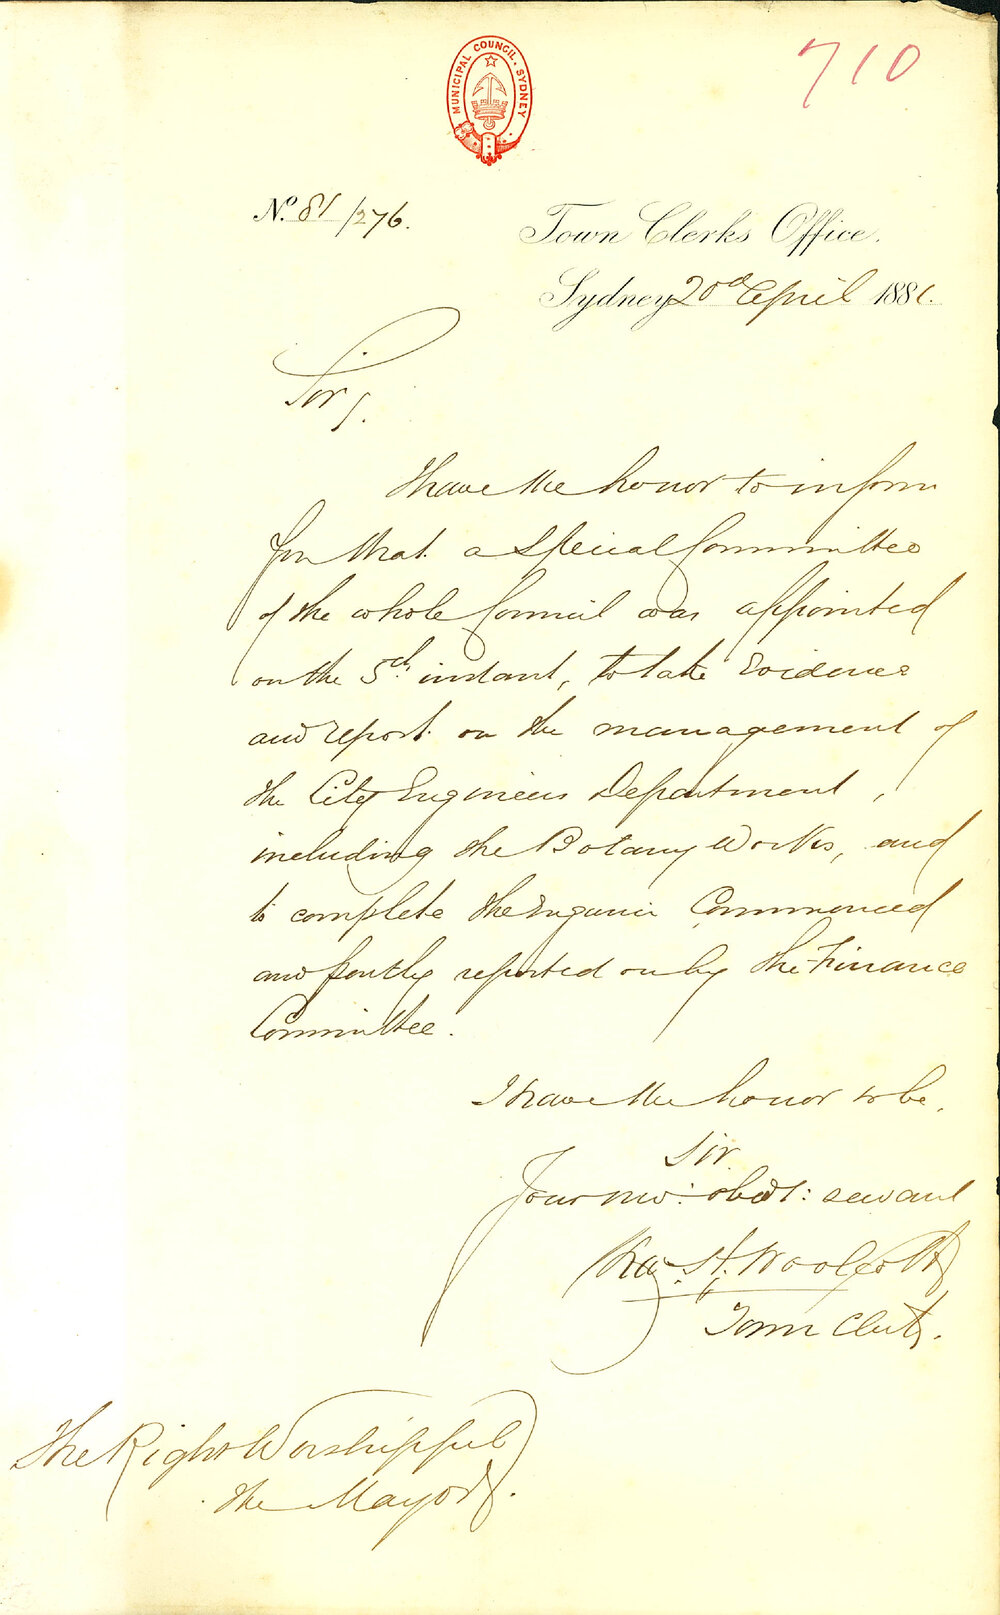 710
MUNICIPAL COUNCIL. SYDNEY
No. 81/276.
Town Clerks Office.
Sydney 20th April 1881.
Sir,
I have the honor to inform
you that a Special Committee
of the whole Council was appointed
on the 5th instant, to take Evidence
and report on the management of
the City Engineers Department,
including the Botany Works, and
to complete the Enquiry Commenced
and partly reported on by the Finance
Committee.
I have the honor to be,
Sir
Your mo: obedt: servant
Chas. H. Woolcott
Town Clerk.
The Right Worshipful
the Mayor.